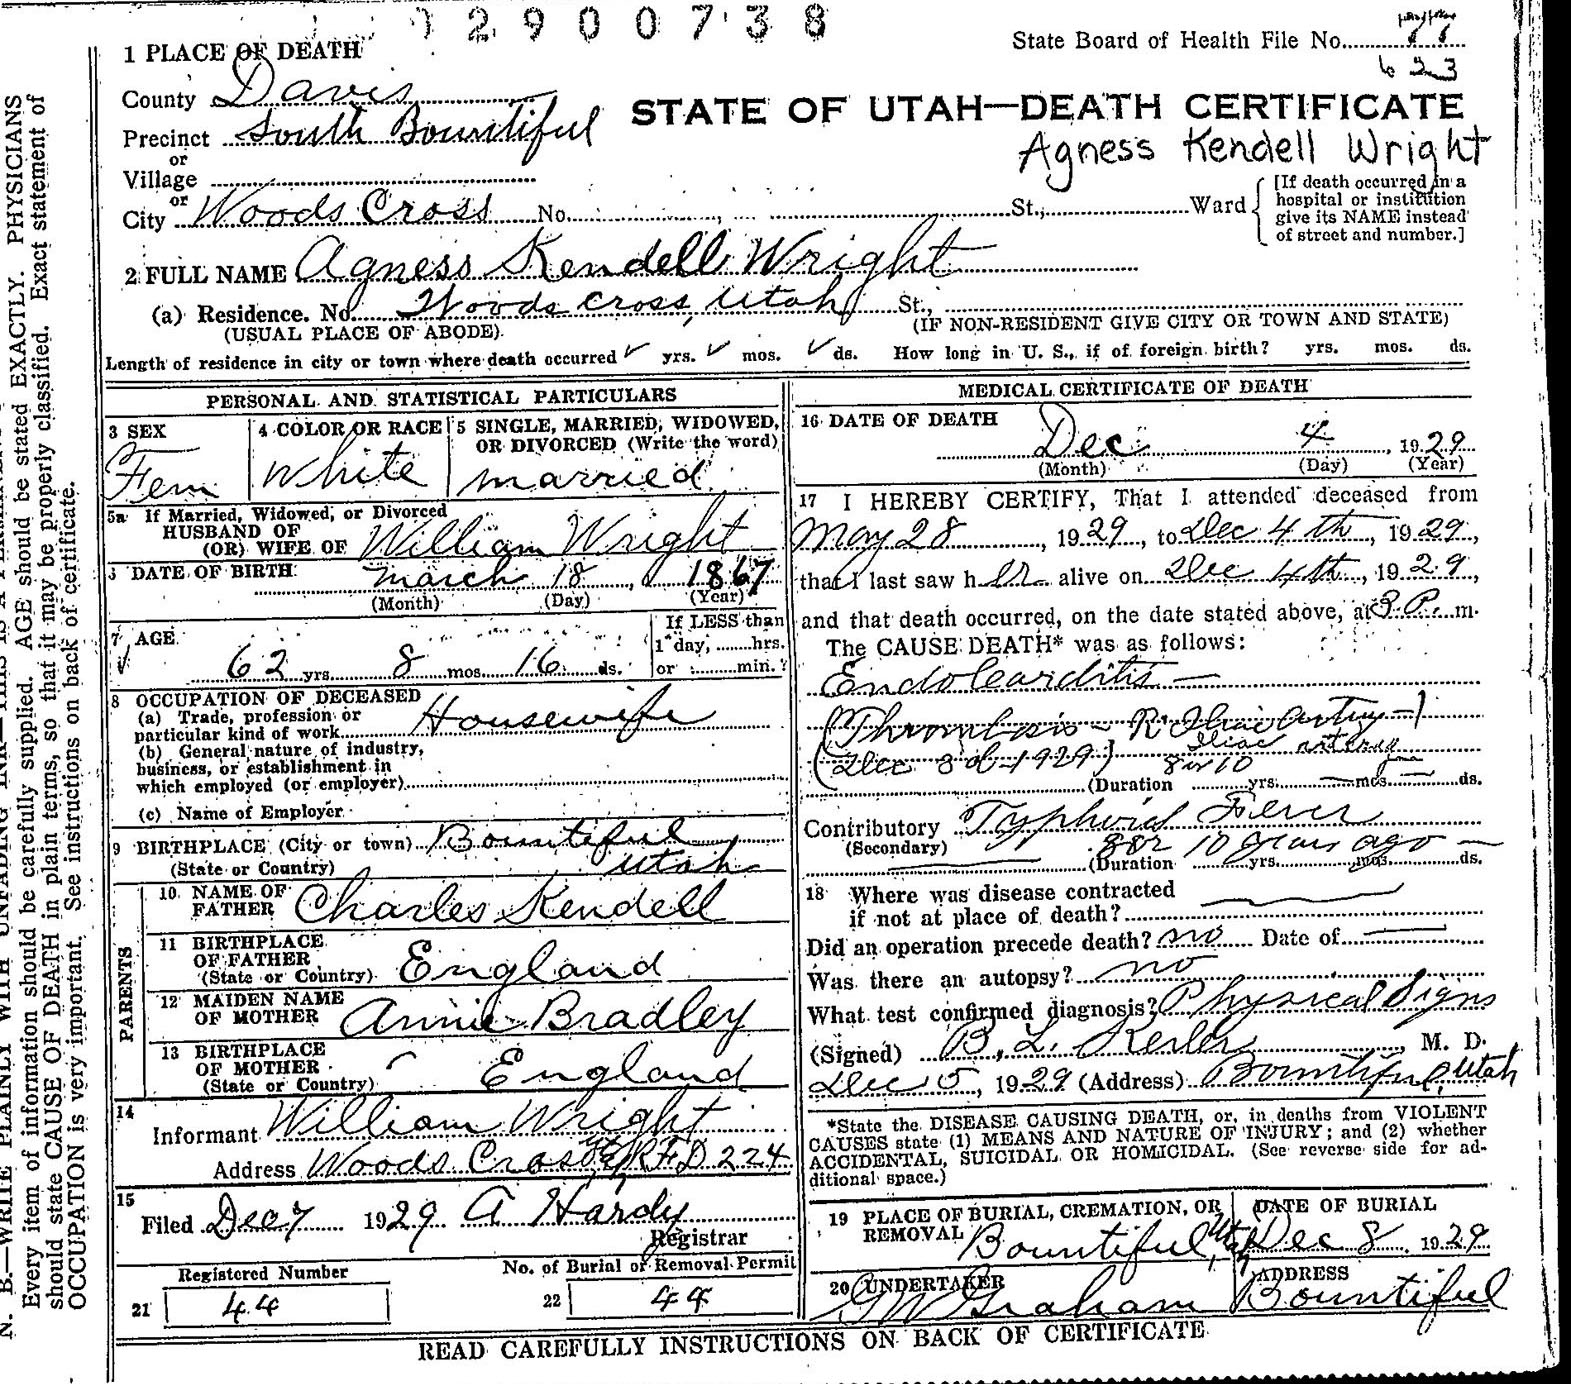 2900738
1 PLACE OF DEATH
State Board of Health File No. 77
623
County Davis
STATE OF UTAH—DEATH CERTIFICATE
Precinct South Bountiful
Agness Kendell Wright
or
Village
or
City Woods Cross No. St., Ward
[If death occurred in a
hospital or institution
give its NAME instead
of street and number.]
2 FULL NAME Agness Kendell Wright
(a) Residence. No. Woods Cross, Utah St.,
(USUAL PLACE OF ABODE)
(IF NON-RESIDENT GIVE CITY OR TOWN AND STATE)
Length of residence in city or town where death occurred yrs. mos. ds. How long in U. S., if of foreign birth? yrs. mos. ds.
PERSONAL AND STATISTICAL PARTICULARS
3 SEX
Fem
4 COLOR OR RACE
White
5 SINGLE, MARRIED, WIDOWED,
OR DIVORCED (Write the word)
married
5a If Married, Widowed, or Divorced
HUSBAND OF
(OR) WIFE OF William Wright
6 DATE OF BIRTH March 18, 1867
(Month) (Day) (Year)
7 AGE
62 yrs. 8 mos. 16 ds.
If LESS than
1 day, hrs.
or min.?
8 OCCUPATION OF DECEASED
(a) Trade, profession or
particular kind of work Housewife
(b) General nature of industry,
business, or establishment in
which employed (or employer)
(c) Name of Employer
9 BIRTHPLACE (City or town) Bountiful
(State or Country) Utah
PARENTS
10 NAME OF
FATHER Charles Kendell
11 BIRTHPLACE
OF FATHER
(State or Country) England
12 MAIDEN NAME
OF MOTHER Annie Bradley
13 BIRTHPLACE
OF MOTHER
(State or Country) England
14
Informant William Wright
Address Woods Cross RFD 224
15
Filed Dec 7 1929 A Hardy
Registrar
Registered Number
21 44
No. of Burial or Removal Permit
22 44
MEDICAL CERTIFICATE OF DEATH
16 DATE OF DEATH
Dec 4, 1929
(Month) (Day) (Year)
17 I HEREBY CERTIFY, That I attended deceased from
May 28, 1929, to Dec 4th, 1929,
that I last saw her alive on Dec 4th, 1929,
and that death occurred, on the date stated above, at 3 P. m.
The CAUSE DEATH* was as follows:
Endocarditis —
(Thrombosis - R. Iliac Artery -)
Iliac artery
(Dec 3d-1929) 8 or 10
(Duration yrs. mos. ds.
Contributory Typhoid Fever
(Secondary) 8 or 10 years ago —
(Duration yrs. mos. ds.
18 Where was disease contracted
if not at place of death?
Did an operation precede death? no Date of
Was there an autopsy? no
What test confirmed diagnosis? Physical Signs
(Signed) B. L. M. D.
Dec 5, 1929 (Address) Bountiful, Utah
*State the DISEASE CAUSING DEATH, or, in deaths from VIOLENT
CAUSES state (1) MEANS AND NATURE OF INJURY; and (2) whether
ACCIDENTAL, SUICIDAL OR HOMICIDAL. (See reverse side for ad-
ditional space.)
19 PLACE OF BURIAL, CREMATION, OR
REMOVAL Bountiful, Utah
DATE OF BURIAL
Dec 8, 1929
20 UNDERTAKER
Graham
ADDRESS
Bountiful
READ CAREFULLY INSTRUCTIONS ON BACK OF CERTIFICATE
N. B.—WRITE PLAINLY WITH UNFADING INK—THIS IS A PERMANENT
Every item of information should be carefully supplied. AGE should be stated EXACTLY. PHYSICIANS
should state CAUSE OF DEATH in plain terms, so that it may be properly classified. Exact statement of
OCCUPATION is very important. See instructions on back of certificate.